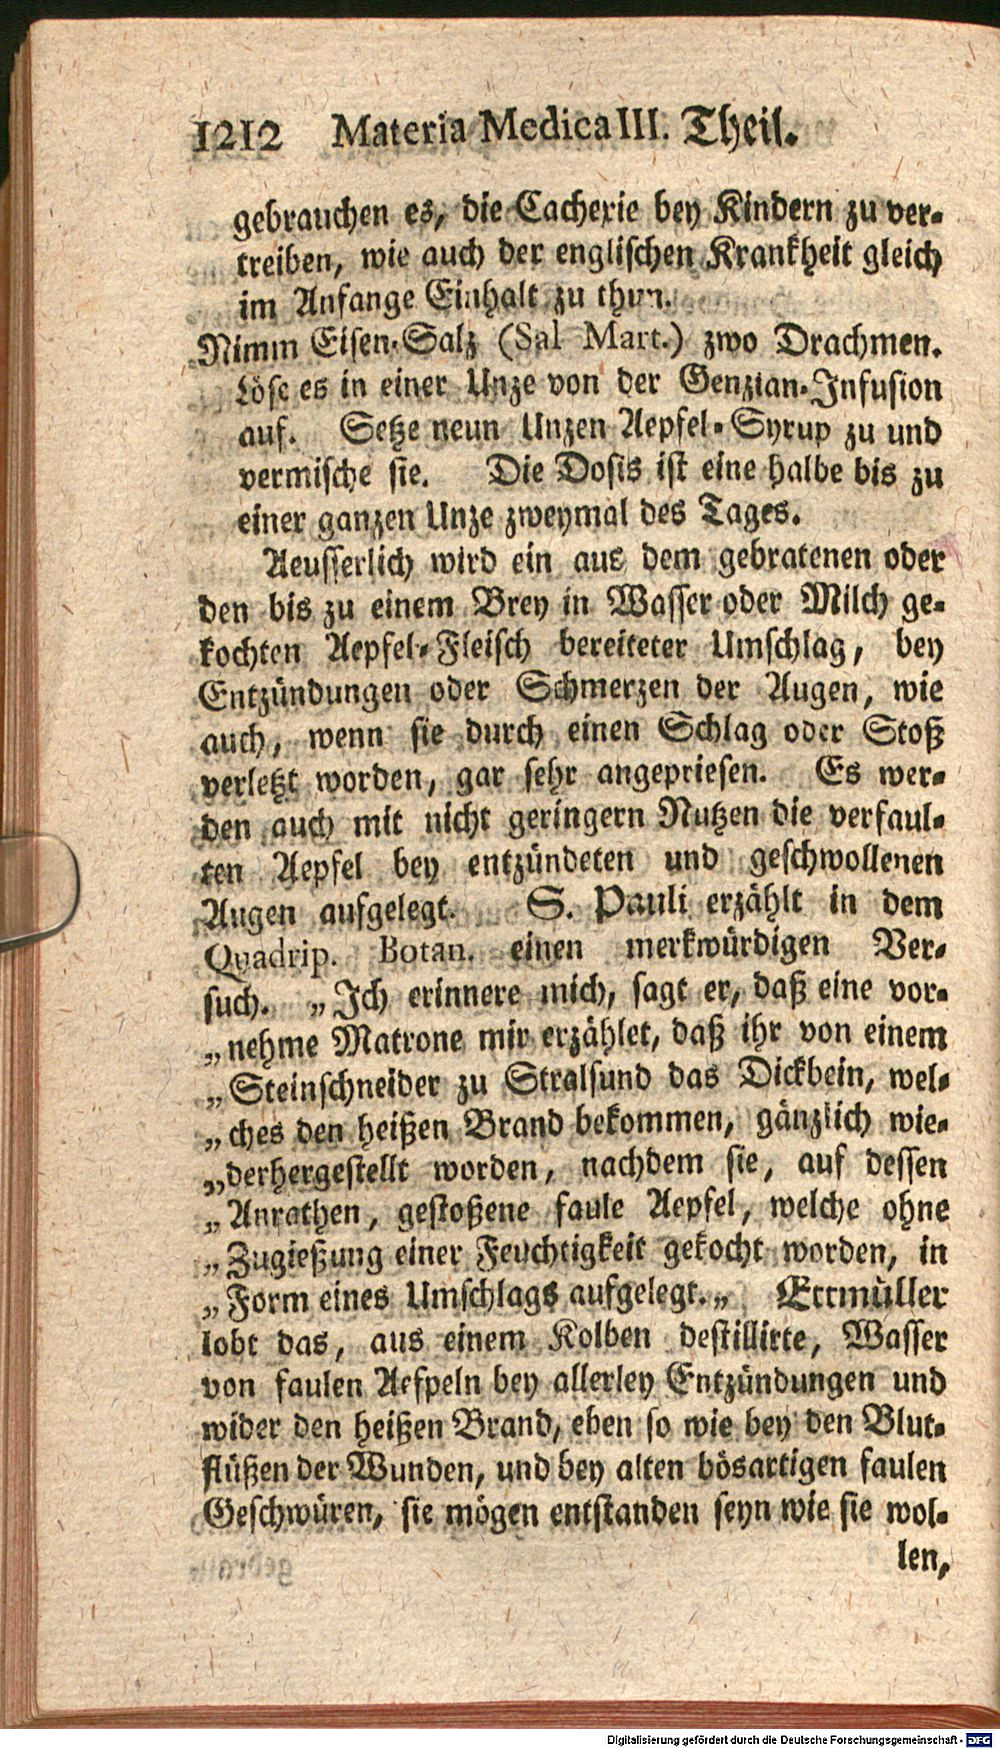 1212 Materia Medica III. Theil.
gebrauchen es, die Cachexie bey Kindern zu ver-
treiben, wie auch der englischen Krankheit gleich
im Anfange Einhalt zu thun.
Nimm Eisen-Salz (Sal Mart.) zwo Drachmen.
Löse es in einer Unze von der Genzian-Infusion
auf. Setze neun Unzen Aepfel-Syrup zu und
vermische sie. Die Dosis ist eine halbe bis zu
einer ganzen Unze zweymal des Tages.
Aeusserlich wird ein aus dem gebratenen oder
den bis zu einem Brey in Wasser oder Milch ge-
kochten Aepfel-Fleisch bereiteter Umschlag, bey
Entzündungen oder Schmerzen der Augen, wie
auch, wenn sie durch einen Schlag oder Stoß
verletzt worden, gar sehr angepriesen. Es wer-
den auch mit nicht geringern Nutzen die verfaul-
ten Aepfel bey entzündeten und geschwollenen
Augen aufgelegt. S. Pauli erzählt in dem
Quadrip. Botan. einen merkwürdigen Ver-
such. „Ich erinnere mich, sagt er, daß eine vor-
„nehme Matrone mir erzählet, daß ihr von einem
„Steinschneider zu Stralsund das Dickbein, wel-
„ches den heißen Brand bekommen, gänzlich wie-
„derhergestellt worden, nachdem sie, auf dessen
„Anrathen, gestoßene faule Aepfel, welche ohne
„Zugießung einer Feuchtigkeit gekocht worden, in
„Form eines Umschlags aufgelegt.„ Ettmüller
lobt das, aus einem Kolben destillirte, Wasser
von faulen Aefpeln bey allerley Entzündungen und
wider den heißen Brand, eben so wie bey den Blut-
flüßen der Wunden, und bey alten bösartigen faulen
Geschwüren, sie mögen entstanden seyn wie sie wol-
len,
Digitalisierung gefördert durch die Deutsche Forschungsgemeinschaft - DFG